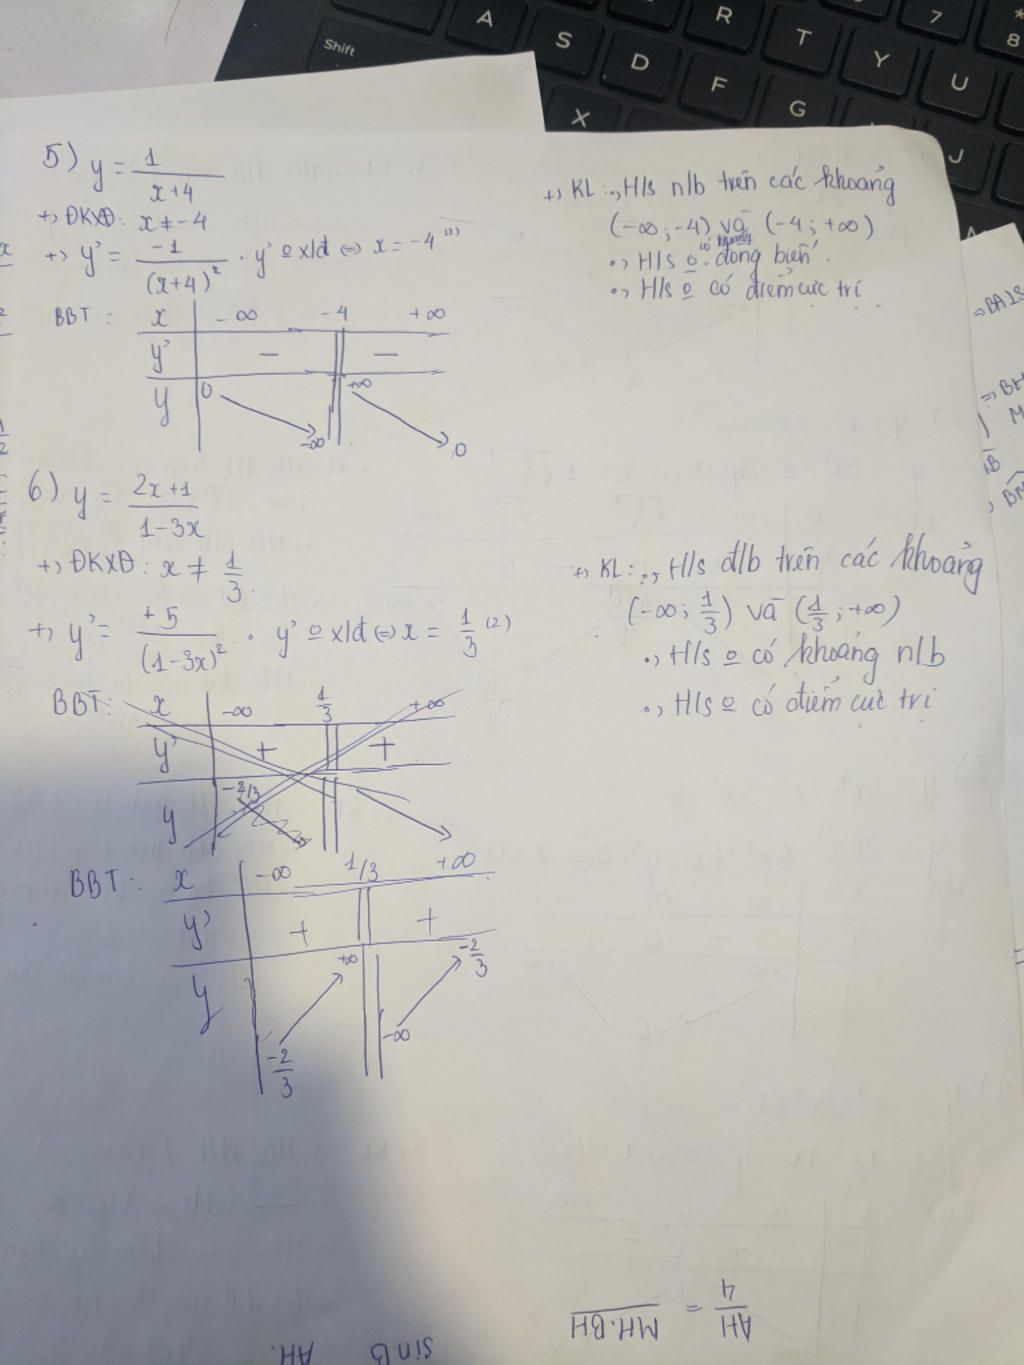 Shift
A
S
D
F
G
R
T
Y
U
J
X
7
8
5) y = 1/(x+4)
+, ĐKXĐ: x ≠ -4
+, y' = -1/(x+4)² . y' o xlđ ⇔ x = -4
BBT: x -∞ -4 +∞
y' - -
y 0 -∞ +∞ 0
+, KL: ., H/s n/b trên các khoảng
(-∞; -4) và (-4; +∞)
., H/s o có khoảng đồng biến.
., H/s o có điểm cực trị
6) y = (2x+1)/(1-3x)
+, ĐKXĐ: x ≠ 1/3
+, y' = +5/(1-3x)² . y' o xlđ ⇔ x = 1/3 (2)
BBT: x -∞ 1/3 +∞
y' + +
y -2/3
BBT: x -∞ 1/3 +∞
y' + +
y -2/3 +∞ -∞ -2/3
+, KL: ., H/s đ/b trên các khoảng
(-∞; 1/3) và (1/3; +∞)
., H/s o có khoảng n/b
., H/s o có điểm cực trị
AH/4 = MH.BH
sin B AH.